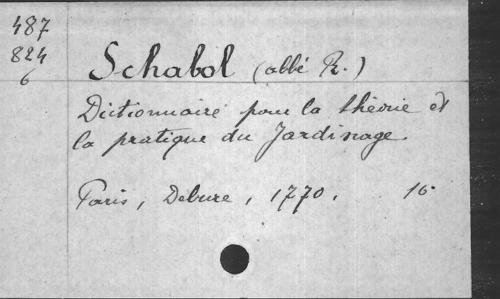 487
824
6
Schabol (abbé R.)
Dictionnaire pour la théorie et
la pratique du Jardinage.
Paris, Debure, 1770. 16°